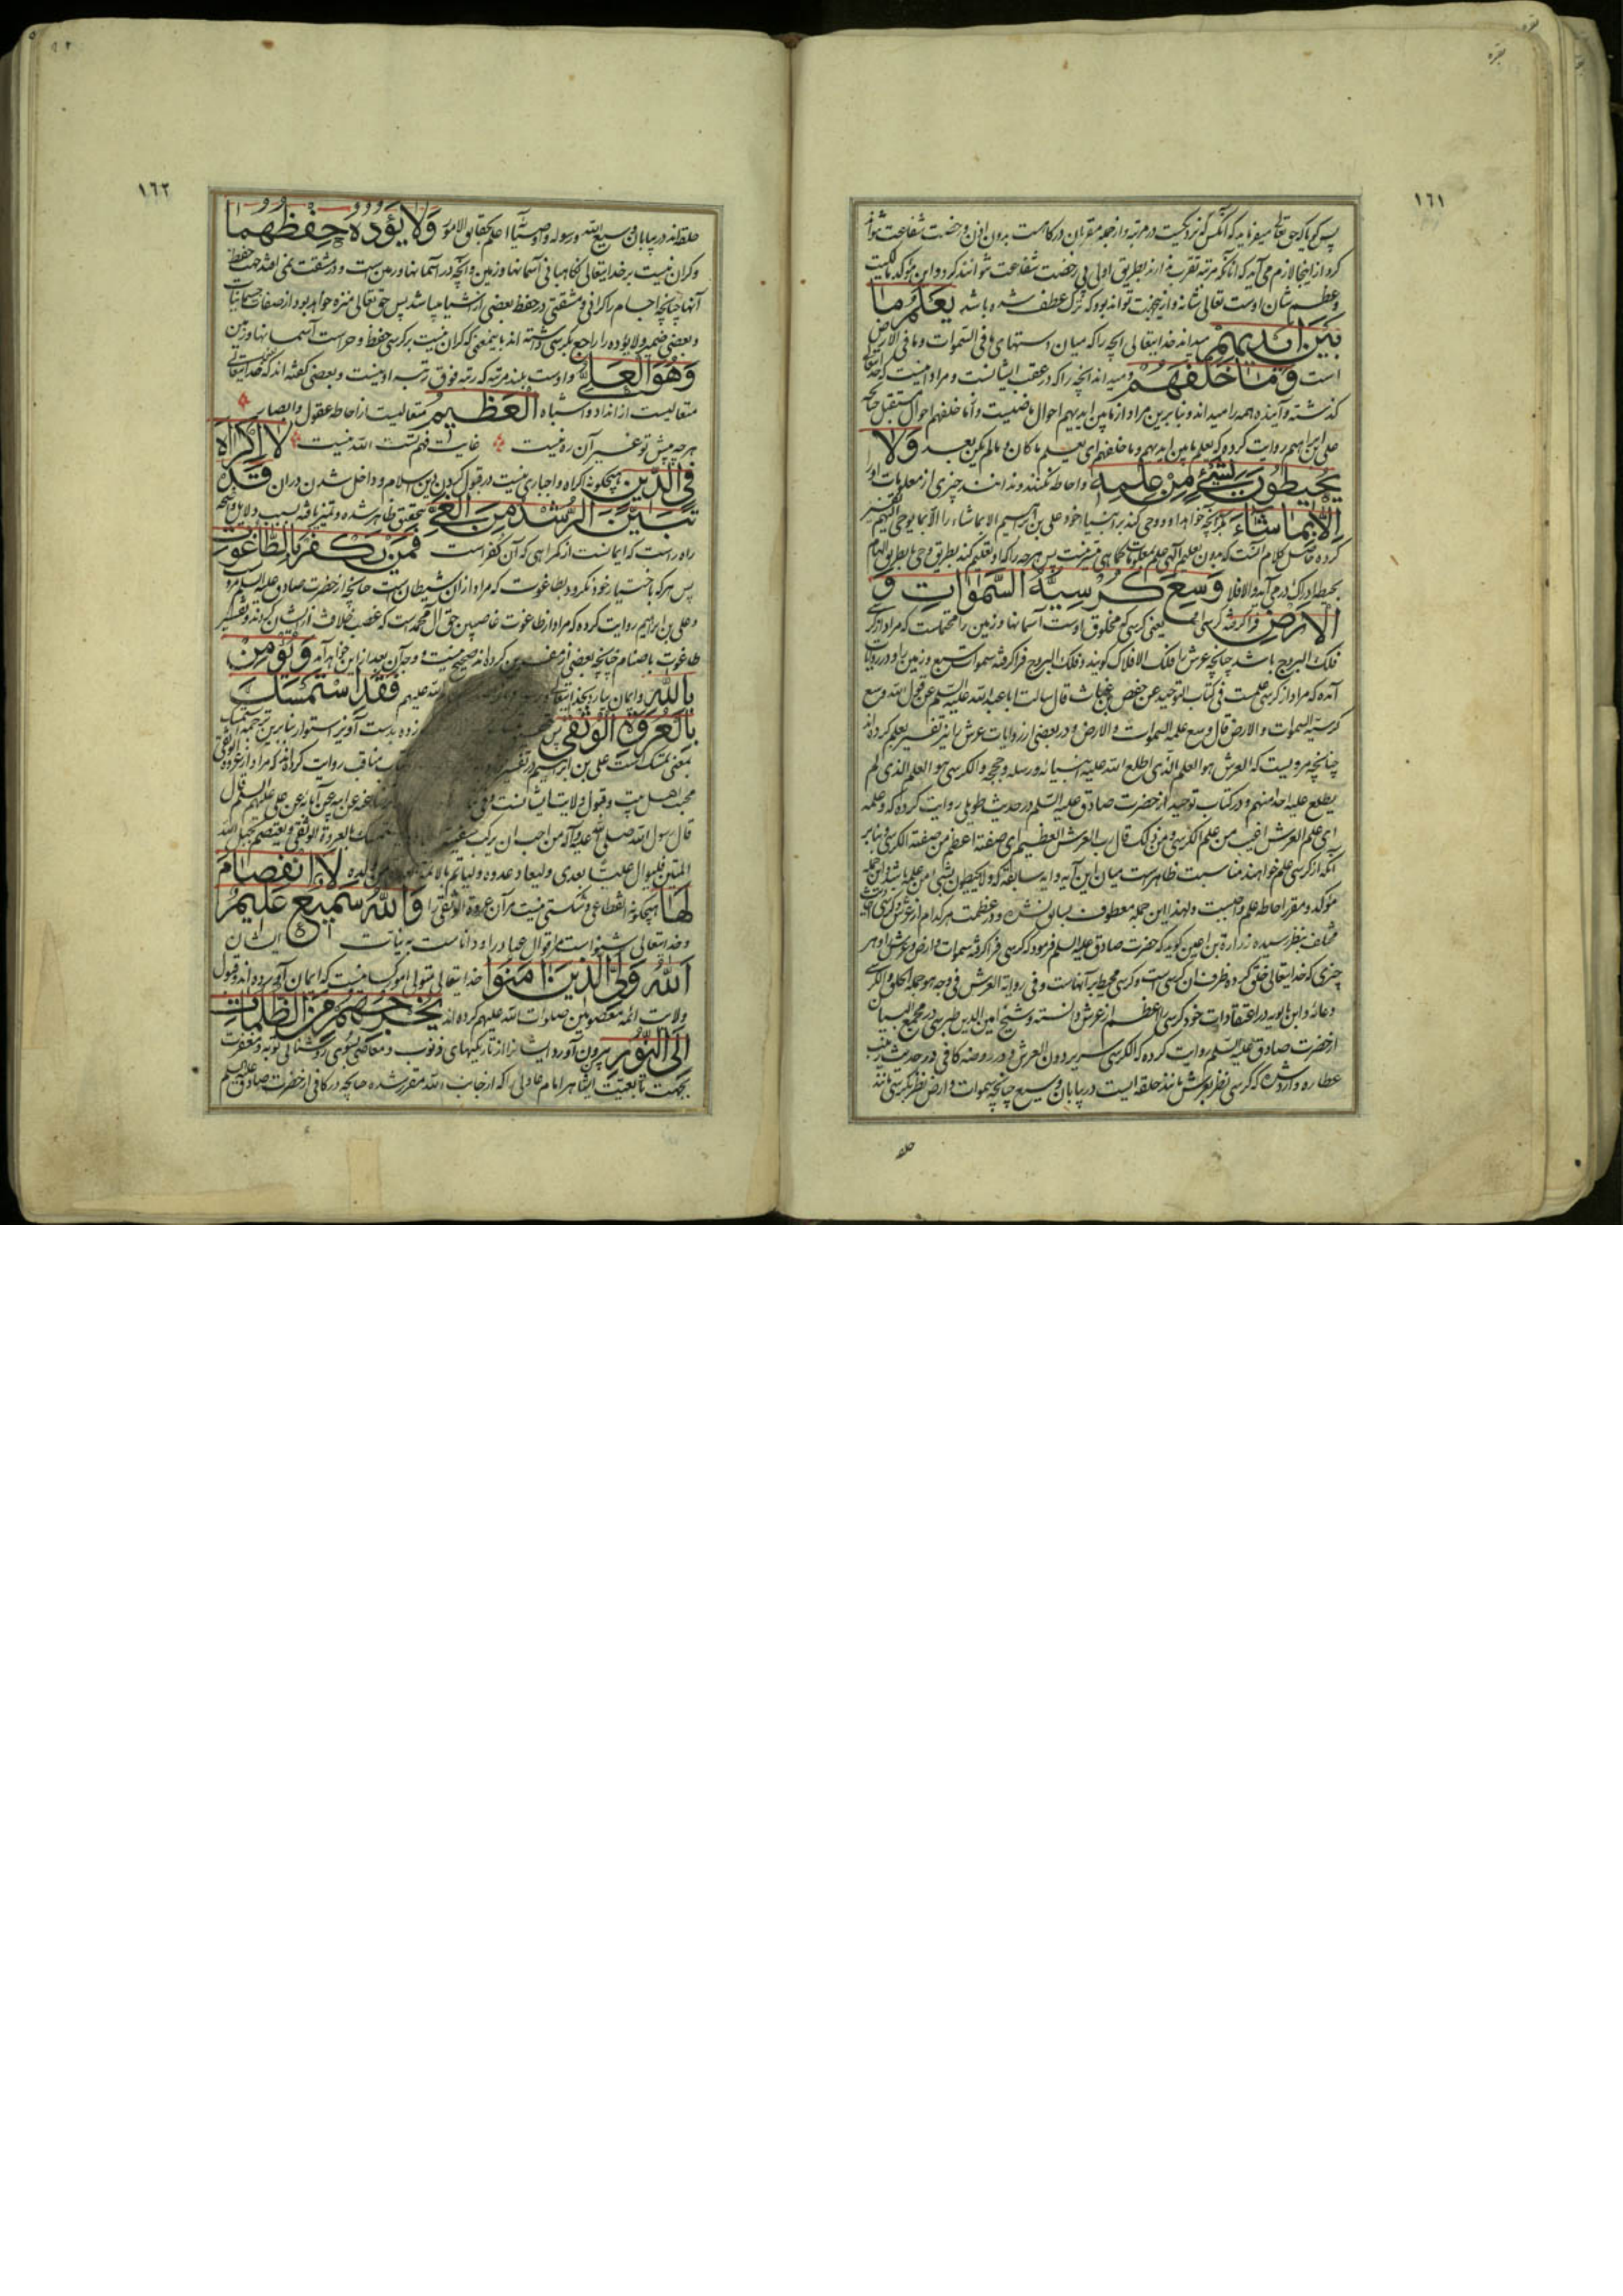 بقره
١٦١
پس گویا که حق تعالی میفرماید که آنکس که نزدیکست در مرتبه و از جمله مقربان درگاهست بدون اذن و رخصت شفاعت نتواند
کرد از اینجا لازم می آید که آنانکه مرتبه تقرب ندارند بطریق اولی بی رخضت شفاعت نتوانند کرد و این مؤکد مالکیت
و عظم شان اوست تعالی شانه و ازینجهت تواند بود که ترک عطف شده باشد یَعْلَمُ مٰا
بَیْنَ اَیْدیهِمْ میداند خدایتعالی آنچه را که میان دستهای ما فی السموات و ما فی الارض
است وَ مٰا خَلْفَهُمْ و میداند آنچه را که در عقب ایشانست و مراد اینست که خدایتعالی
گذشته و آینده همه را میداند و بنا برین مراد از ما بین ایدیهم احوال ماضیست و از ما خلفهم احوال مستقبل چنانچه
علی بن ابراهیم روایت کرده که یعلم ما بین ایدیهم و ما خلفهم ای یعلم ما کان و ما لم یکن بعد وَ لٰا
یُحیطُونَ بِشَیْءٍ مِنْ عِلْمِهِ و احاطه نکنند و ندانند چیزی از معلومات او را
اِلّٰا بِمٰا شٰاءَ مگر آنچه خواهد او و وحی کند بر انبیاء خود و علی بن ابراهیم الا بما شاء را الا بما یوحی الیهم تفسیر
کرده حاصل کلام آنست که بدون تعلیم الهی علم بمعلومات کماهی میسر نیست پس هر چه را که او تعلیم کند بطریق وحی یا بطریق الهام
بحیطه ادراک در می آید و الا فلا وَسِعَ کُرْسِیُّهُ السَّمٰوٰاتِ وَ
الْاَرْضَ فرا گرفته کرسی خدا یعنی کرسی که مخلوق اوست آسمانها و زمین را محتملست که مراد از کرسی
فلک البروج باشد چنانچه عرش را فلک الافلاک گویند و فلک البروج فرا گرفته سموات سبع و زمین را و در روایات
آمده که مراد از کرسی علمست فی کتاب التوحید عن حفص بن غیاث قال سالت ابا عبد الله علیه السلم عن قول الله وسع
کرسیّه السموات و الارض قال وسع علمه السموات و الارض و در بعضی از روایات عرش را نیز تفسیر بعلم کرده اند
چنانچه مرویست که العرش هو العلم الذی اطلع الله علیه انبیائه و رسله و حججه و الکرسی هو العلم الذی لم
یطلع علیه احدا منهم و در کتاب توحید از حضرت صادق علیه السلم در حدیث طویلی روایت کرده که و علمه
ای علم العرش اغیب من علم الکرسی و من ذلک قال رب العرش العظیم ای صفته اعظم من صفة الکرسی و بنا بر
آنکه از کرسی علم خواهند مناسبت ظاهرست میان این آیه و آیه سابقه که و لا یحیطون بشی من علمه باشد این جمله
مؤکد و مقرر احاطه علم واجبست و لهذا این جمله معطوف بسابق نشده و در عظمت هر کدام از عرش و کرسی احادیث
مختلف بنظر رسیده زرارة بن اعین گوید که حضرت صادق علیه السلم فرمود که کرسی فرا گرفته سموات و ارض و عرش و هر
چیزی که خدایتعالی خلق کرده ظرف آن کرسی است و کرسی محیط بر آنهاست و فی روایة العرش فی وجه هو جملة الخلق و الکرسی
وعائه و ابن بابویه در اعتقادات خود کرسی را اعظم از عرش دانسته و شیخ امین الدین طبرسی در مجمع البیان
از حضرت صادق علیه السلم روایت کرده که الکرسی سریر دون العرش و در روضه کافی در حدیث زینب
عطاره وارد شده که کرسی نظر بعرش مانند حلقه ایست در بیابان وسیع چنانچه سموات و ارض نظر بکرسی مانند
حلقه
١٦٢
حلقه اند در بیابان وسیع الله و رسوله و اوصیائه اعلم بحقایق الامور وَ لٰا یَؤُدُهُ حِفْظُهُمٰا
و گران نیست بر خدایتعالی نگاهبانی آسمانها و زمین و آنچه در آسمانها و زمین ست و در مشقت نمی اندازد حفظ
آنها چنانچه اجسام را گرانی و مشقتی در حفظ بعضی از اشیا میباشد پس حق تعالی منزه خواهد بود از صفات جسمانیات
و بعضی ضمیر و لا یؤده را راجع بکرسی داشته اند باینمعنی که گران نیست بر کرسی حفظ و حراست آسمانها و زمین
وَ هُوَ الْعَلِیُّ و اوست بلند مرتبه که رتبه فوق رتبه او نیست و بعضی گفته اند که خدایتعالی
متعالیست از انداد و اشباه الْعَظیمُ متعالیست از احاطه عقول و ابصار
هر چه پیش تو غیر آن ره نیست غایت فهم تست الله نیست لٰا اِکْرٰاهَ
فِی الدّینِ هیچگونه اکراه و اجباری نیست در قبول کردن دین اسلام و داخل شدن در آن قَدْ
تَبَیَّنَ الرُّشْدُ مِنَ الْغَیِّ بتحقیق ظاهر شده و تمیز یافته بسبب دلایل واضحه
راه راست که ایمانست از گمراهی که آن کفر است فَمَنْ یَکْفُرْ بِالطّٰاغُوتِ
پس هر که باختیار خود نگرود بطاغوت که مراد از آن شیطان است چنانچه از حضرت صادق علیه السلم مرویست
و علی بن ابراهیم روایت کرده که مراد از طاغوت غاصبین حق آل محمدست که غصب خلافت از ایشان کردند و تفسیر
طاغوت باصنام چنانچه بعضی از مفسرین کرده اند صحیح نیست و وجه آن بعد ازین خواهد آمد وَ یُؤْمِنْ
بِاللّٰهِ و ایمان بیارد بخدایتعالی الله علیهم فَقَدِ اسْتَمْسَکَ
بِالْعُرْوَةِ الْوُثْقٰی پس زده بدست آویز استوار بنا برین ترجمه استمسک
بمعنی تمسک است علی بن ابراهیم در تفسیر کتاب مناقب روایت کرده اند که مراد از عروة الوثقی
محبت اهل بیت و قبول ولایت ایشانست و فی عن ابیه عن آبائه عن علی علیهم السلم قال
قال رسول الله صلی الله علیه و آله من احب ان یرکب سفینة و یستمسک بالعروة الوثقی و یعتصم بحبل الله
المتین فلیوال علیّا بعدی و لیعاد عدوه و لیاتم بالائمة من ولده لَا انْفِصٰامَ
لَهٰا هیچگونه انقطاعی و شکستی نیست مر آن عروة الوثقی را وَ اللّٰهُ سَمیعٌ عَلیمٌ
و خدایتعالی شنواست مر اقوال عباد را و داناست به نیّات ایشان
اَللّٰهُ وَلِیُّ الَّذینَ اٰمَنُوا خدایتعالی متولی امور کسانیست که ایمان آورده اند و قبول
ولایت ائمه معصومین صلوات الله علیهم کرده اند یُخْرِجُهُمْ مِنَ الظُّلُمٰاتِ
اِلَی النُّورِ بیرون آورد ایشانرا از تاریکیهای ذنوب و معاصی بسوی روشنائی توبه و مغفرت
بجهت تابعیت ایشان هر امام عادلی را که از جانب الله مقرر شده چنانچه در کافی از حضرت صادق علیه السلم